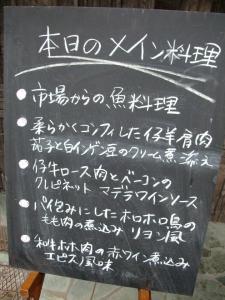 本日のメイン料理
市場からの魚料理
柔らかくコンフィした仔羊肩肉
茄子と白インゲン豆のクリーム煮添え
仔牛ロース肉とベーコンの
クレピネット マデラワインソース
パイ包みにしたホロホロ鳥の
もも肉の煮込み リヨン風
和牛ホホ肉の赤ワイン煮込み
エピス風味